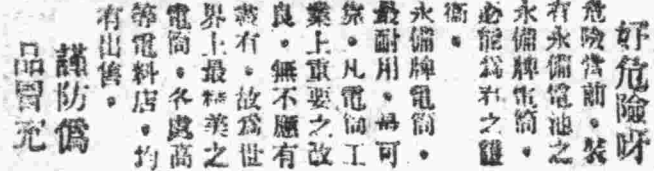 好危險呀
危險當前。裝
有永備電池之
永備牌電筒。
必能爲君之護
衞。
永備牌電筒。
最耐用。最可
靠。凡電筒工
業上重要之改
良。無不應有
盡有。故爲世
界上最精美之
電筒。各處高
等電料店。均
有出售。
謹防僞
品冒充